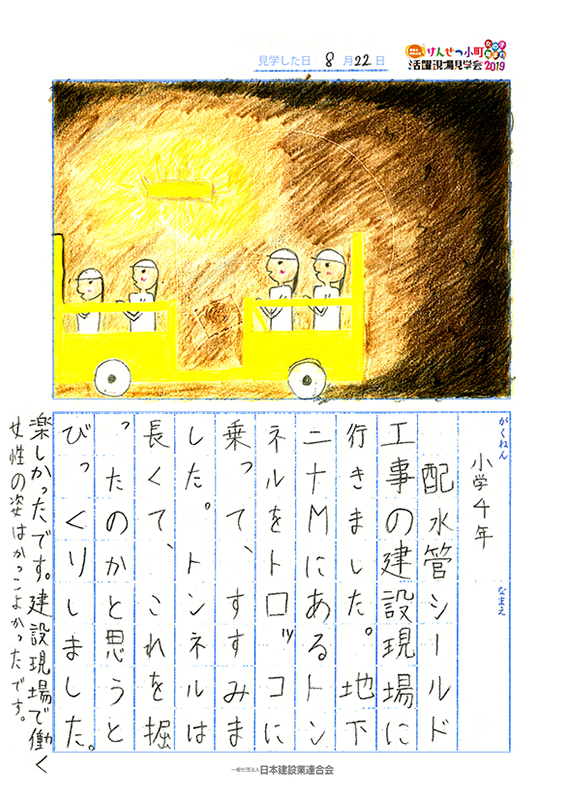 見学した日 8月22日
けんせつ小町
活躍現場見学会2019
がくねん 小学4年
なまえ
配水管シールド
工事の建設現場に
行きました。地下
二十Mにあるトン
ネルをトロッコに
乗って、すすみま
した。トンネルは
長くて、これを掘
ったのかと思うと
びっくりしました。
楽しかったです。建設現場で働く
女性の姿はかっこよかったです。
一般社団法人日本建設業連合会